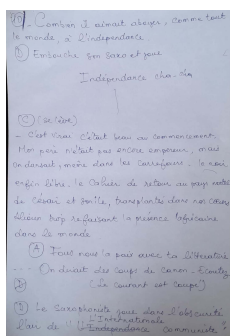 (D) - Combon il aimait aboyer, comme tout
le monde, à l'indépendance
(D) Embouche son saxo et joue
Indépendance cha-cha
(C) (se lève)
- C'est vrai c'était beau au commencement.
Mon père n'était pas encore empereur, mais
on dansait, même dans les carrefours. le noir
enfin libre. le Cahier de retour au pays natal
de Césaire et jusqu'à, transplantés dans nos cœurs
refaisant la présence africaine
dans le monde
(A) Fous nous la paix avec ta littérature
... On dirait des coups de canon. Ecoutez
(Le courant est coupé)
(D) Le saxophoniste joue dans l'obscurité
l'air de "L'Internationale communiste"